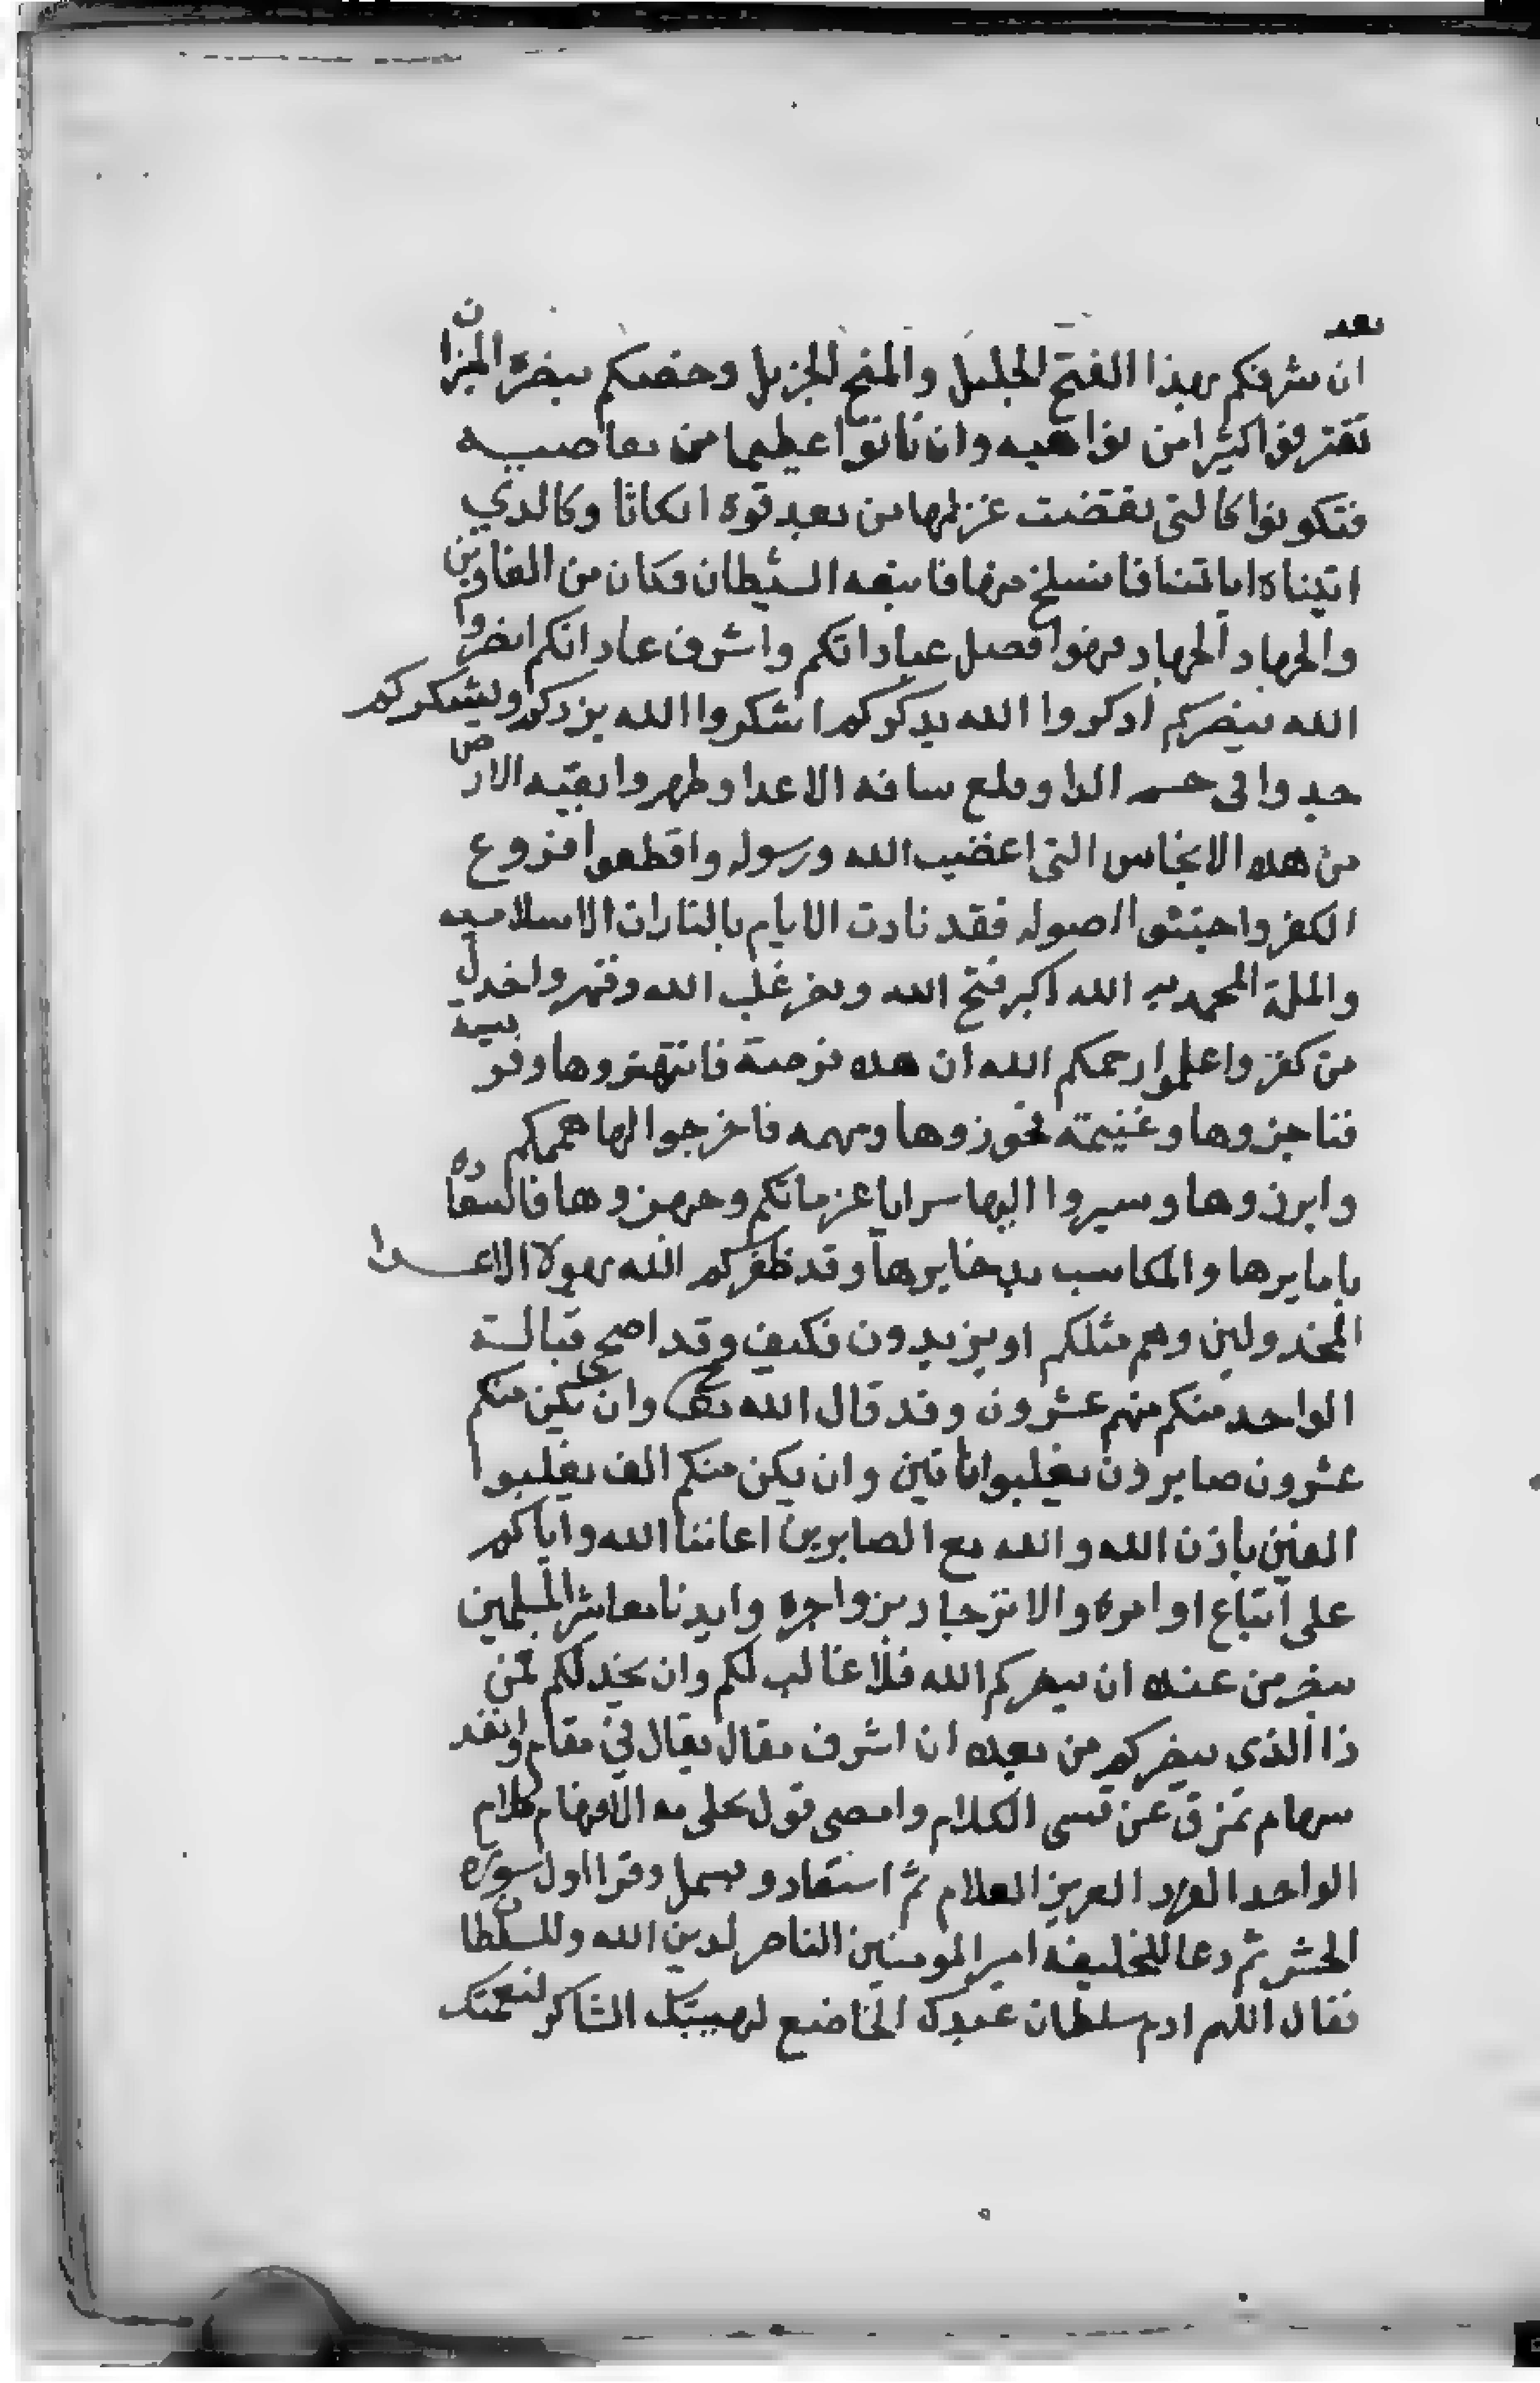 بعد
ان شرفكم بهذا الفتح الجليل والمنح الجزيل وخصكم بنصره المبين ان
تقترفوا كثيرا من نواهيه وان تاتوا عظيما من معاصيه
فتكونوا كالتي نقضت غزلها من بعد قوة انكاثا وكالذي
اتيناه اياتنا فانسلخ منها فاتبعه الشيطان فكان من الغاوين
والجهاد الجهاد فهو افضل عباداتكم واشرف عاداتكم انصروا
الله ينصركم اذكروا الله يذكركم اشكروا الله يزدكم ويشكركم
جدوا في حسم الدا وقلع شافه الاعدا وطهروا بقيه الارض
من هذه الانجاس التي اغضبت الله ورسوله واقطعوا فروع
الكفر واجتثوا اصوله فقد نادت الايام بالثارات الاسلاميه
والملة المحمديه الله اكبر فتح الله ونصر غلب الله وقهر واذل
من كفر واعلموا رحمكم الله ان هذه فرصة فانتهزوها وفريسه
فناجزوها وغنيمته فحوزوها ومهمه فاخرجوا لها هممكم
وابرزوها وسيروا اليها سرايا عزماتكم وجهزوها فالسعاده
بامايرها والمكاسب بدخايرها وقد ظفركم الله بهولا الاعدا
المخذولين وهم مثلكم او يزيدون فكيف وقد اضحى قبالة
الواحد منكم منهم عشرون وقد قال الله تعالى وان يكن منكم
عشرون صابرون يغلبوا ماتين وان يكن منكم الف يغلبوا
الفين باذن الله والله مع الصابرين اعاننا الله واياكم
على اتباع اوامره والانزجار بزواجره وايدنا معاشر المسلمين
بنصر من عنده ان ينصركم الله فلا غالب لكم وان يخذلكم فمن
ذا الذي ينصركم من بعده ان اشرف مقال يقال في مقام وانفذ
سهام تمزق عن قسي الكلام وامضى قول تحلى به الافهام كلام
الواحد الفرد العزيز العلام ثم استعاد وبسمل وقرا اول سورة
الحشر ثم دعا للخليفة امير المومنين الناصر لدين الله وللسلطان
فقال اللهم ادم سلطان عبدك الخاضع لهيبتك الشاكر لنعمتك